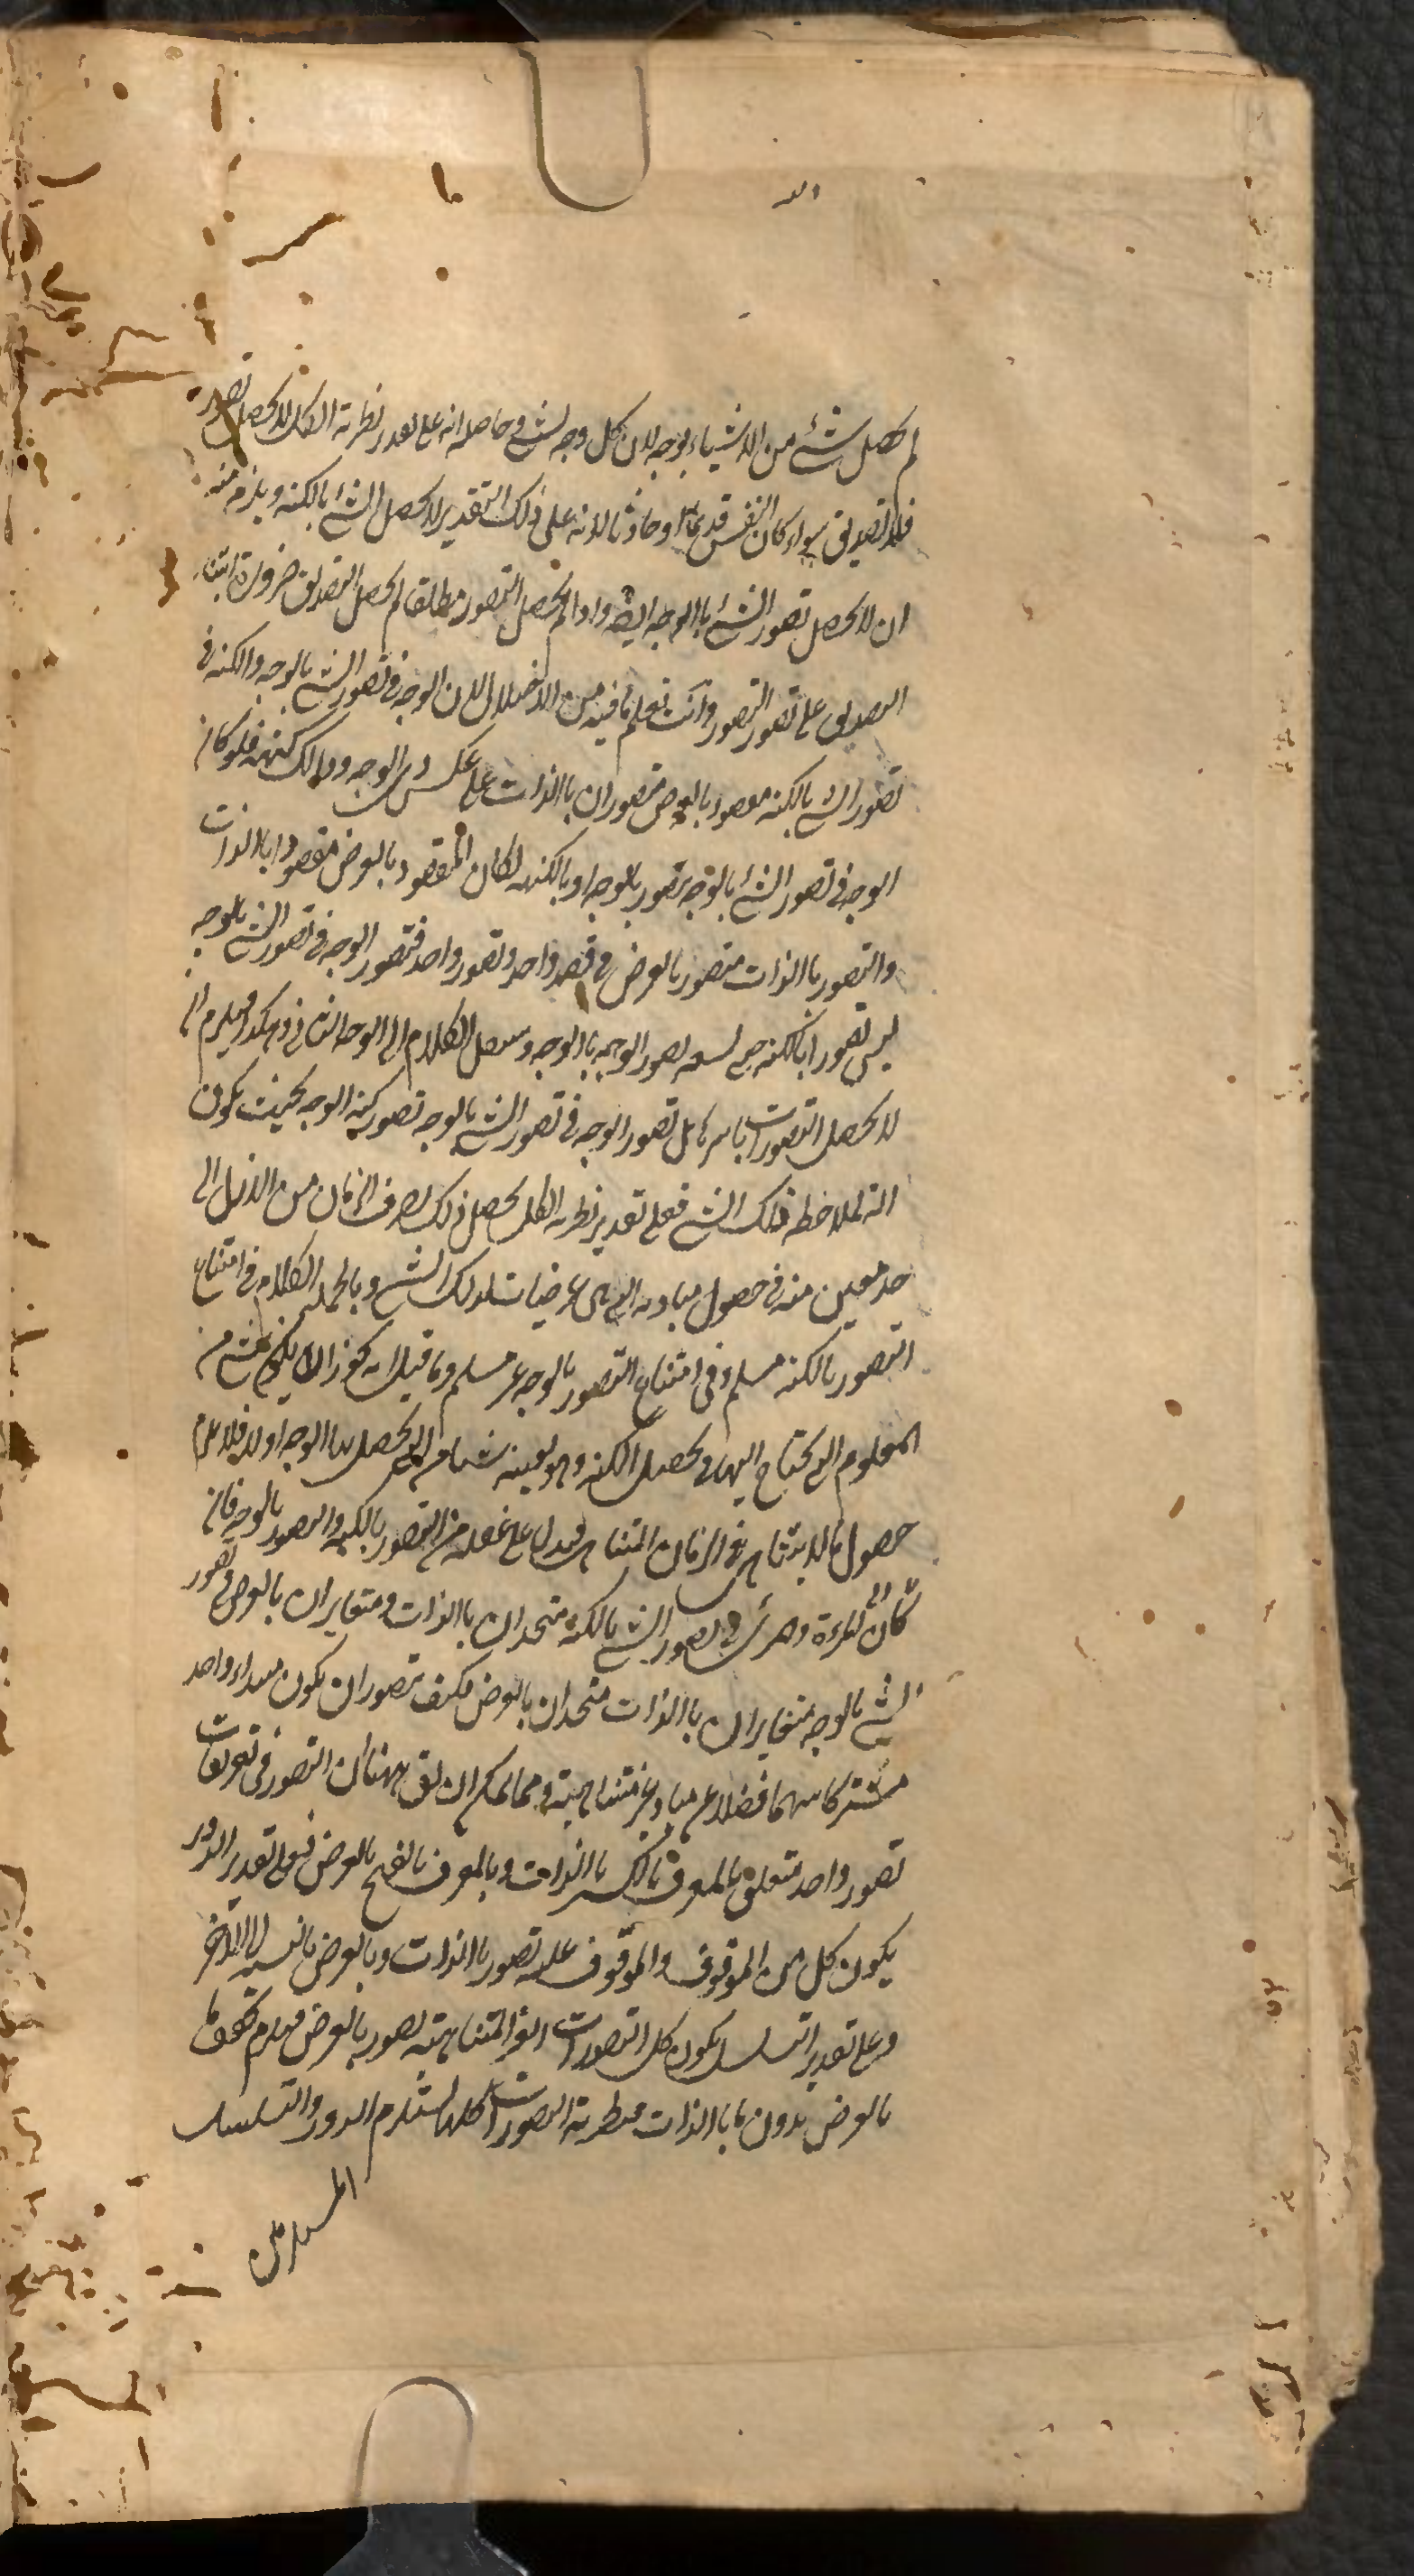 لم يحصل شئ من الاشياء بوجه لان كل وجه لشئ وحاصله انه على تقدير نظرية الكل لا يحصل تصور
فلا تصديق سواء كان النفس قديما او حادثا لانه على ذلك التقدير لا يحصل الشئ بالكنه ويلزم منه
ان لا يحصل تصور الشئ باالوجه ايضه واذا لم يحصل التصور مطلقا لم يحصل التصديق ضرورة ابتناء
التصديق على تصور التصور وانت تعلم ما فيه من الاختلال لان الوجه في تصور الشئ بالوجه والكنه في
تصور الشئ بالكنه مقصود بالعرض متصوران باالذات على عكس ذى الوجه وذالك كنهه فلو كان
الوجه في تصور الشئ بالوجه تصور بالوجه او بالكنه لكان المقصود بالعرض مقصودا باالذات
والتصور باالذات متصور بالعرض في قصد واحد وتصور واحد فتصور الوجه في تصور الشئ بالوجه
ليس تصورا بالكنه حتى تصور الوجه باالوجه وينقل الكلام الى الوجه الثاني وهكذا فيلزم ان
لا يحصل التصورات باسرها بل تصور الوجه في تصور الشئ بالوجه تصور كنه الوجه بحيث يكون
الة لملاحظة ذلك الشئ فعلى تقدير نظرية الكل يحصل ذلك بصرف الزمان من الازل الى
حد معين منه في حصول مباديه التي هى عرضيات لذلك الشئ وبالجملة الكلام في امتناع
التصور بالكنه مسلم وفي امتناع التصور بالوجه غير مسلم وما قيل انه يجوز ان لا يكون شئ من
المعلوم التي يحتاج اليها في تحصيل الكنه وهو بعينه شيئا من التى يحصل بها الوجه اولا فلا يلزم
حصول مالا يتناهى في الزمان المتناهى فيدل على غفلة من التصور بالكنه والتصور بالوجه فان
كان المرءة ومرئى في تصور الشئ بالكنه متحدان باالذات ومتغايران بالعرض وتصور
الشئ بالوجه متغايران باالذات متحدان بالعرض فكيف يتصور ان يكون مبداء واحد
مشتركا بينهما فضلا عن مباد غير متناهية ومما يمكن ان يق ههنا ان التصور في تعريفات
تصور واحد متعلق بالمعرف بالكسر باالذات وبالمعرف بالفتح بالعرض فعلى تقدير الدور
يكون كل من الموقوف والموقوف عليه تصور باالذات وبالعرض بالنسبة الى الاخر
وعلى تقدير التسلسل يكون كل التصورات الغير المتناهية تصور بالعرض فيلزم تحقق ما
بالعرض بدون ما باالذات فنظرية التصورات كلها يستلزم الدور والتسلسل
المستلزمين